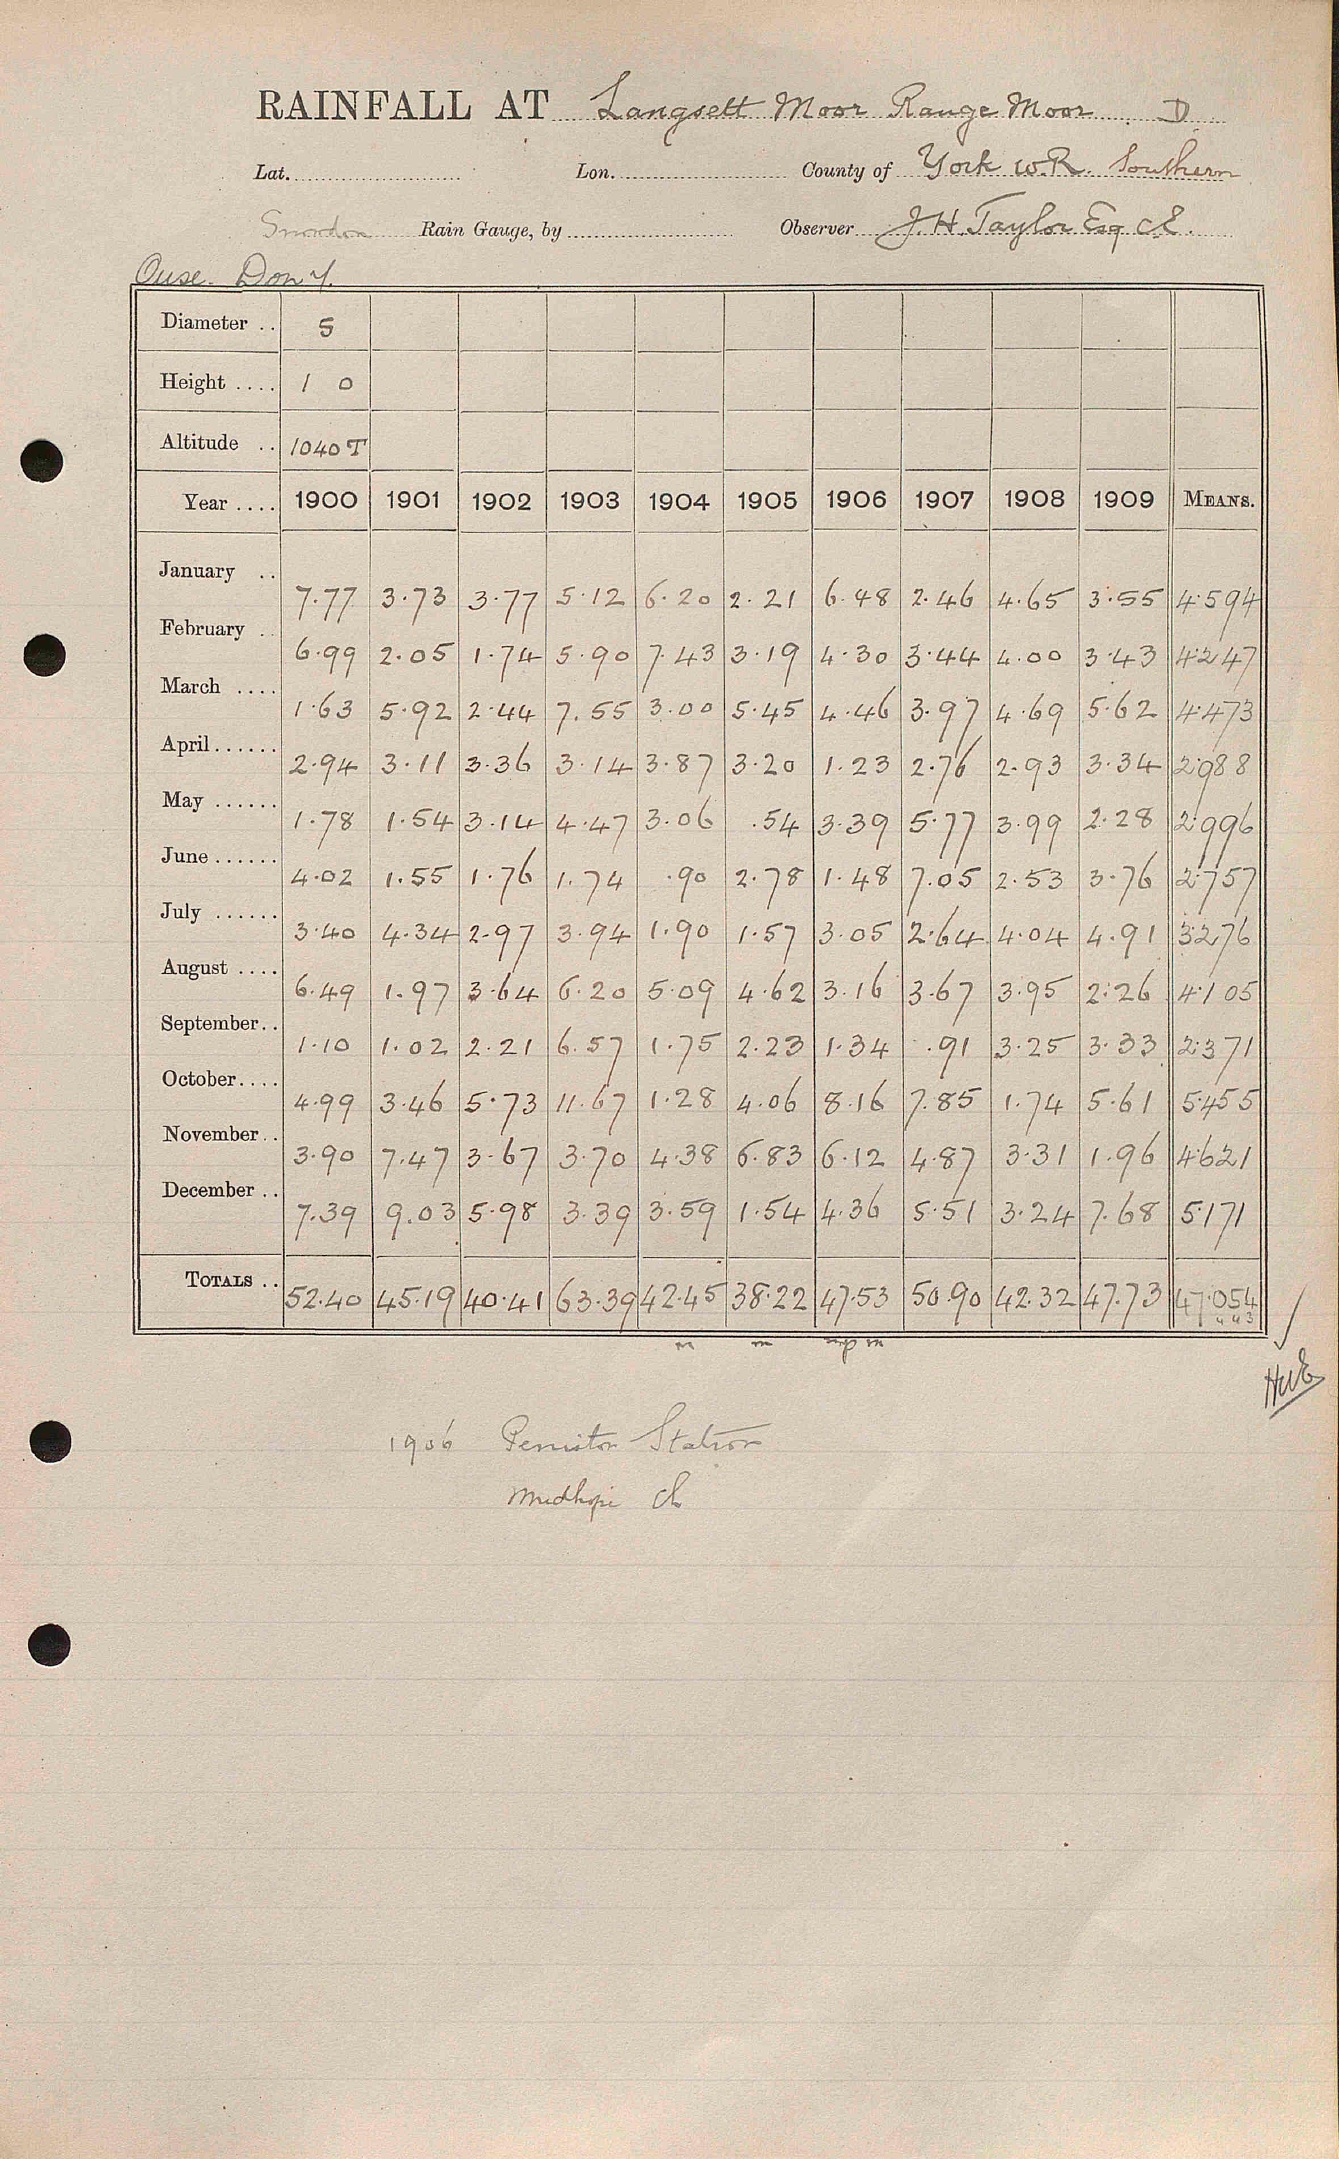 RAINFALL AT Langsett Moor Range Moor D
Lat. Lon. County of York W.R. Southern
Snowdon Rain Gauge, by Observer J. H. Taylor Esq CE.
Ouse. Don Y.
Diameter .. 5
Height .... 1 0
Altitude .. 1040 T
Year .... 1900 1901 1902 1903 1904 1905 1906 1907 1908 1909 MEANS.
January .. 7.77 3.73 3.77 5.12 6.20 2.21 6.48 2.46 4.65 3.55 4.594
February .. 6.99 2.05 1.74 5.90 7.43 3.19 4.30 3.44 4.00 3.43 4.247
March .... 1.63 5.92 2.44 7.55 3.00 5.45 4.46 3.97 4.69 5.62 4.473
April...... 2.94 3.11 3.36 3.14 3.87 3.20 1.23 2.76 2.93 3.34 2.988
May ...... 1.78 1.54 3.14 4.47 3.06 .54 3.39 5.77 3.99 2.28 2.996
June ...... 4.02 1.55 1.76 1.74 .90 2.78 1.48 7.05 2.53 3.76 2.757
July ...... 3.40 4.34 2.97 3.94 1.90 1.57 3.05 2.64 4.04 4.91 3.276
August .... 6.49 1.97 3.64 6.20 5.09 4.62 3.16 3.67 3.95 2.26 4.105
September.. 1.10 1.02 2.21 6.57 1.75 2.23 1.34 .91 3.25 3.33 2.371
October.... 4.99 3.46 5.73 11.67 1.28 4.06 8.16 7.85 1.74 5.61 5.455
November.. 3.90 7.47 3.67 3.70 4.38 6.83 6.12 4.87 3.31 1.96 4.621
December .. 7.39 9.03 5.98 3.39 3.59 1.54 4.36 5.51 3.24 7.68 5.171
TOTALS .. 52.40 45.19 40.41 63.39 42.45 38.22 47.53 50.90 42.32 47.73 47.054
1906 Peniston Station
Midhope Ch